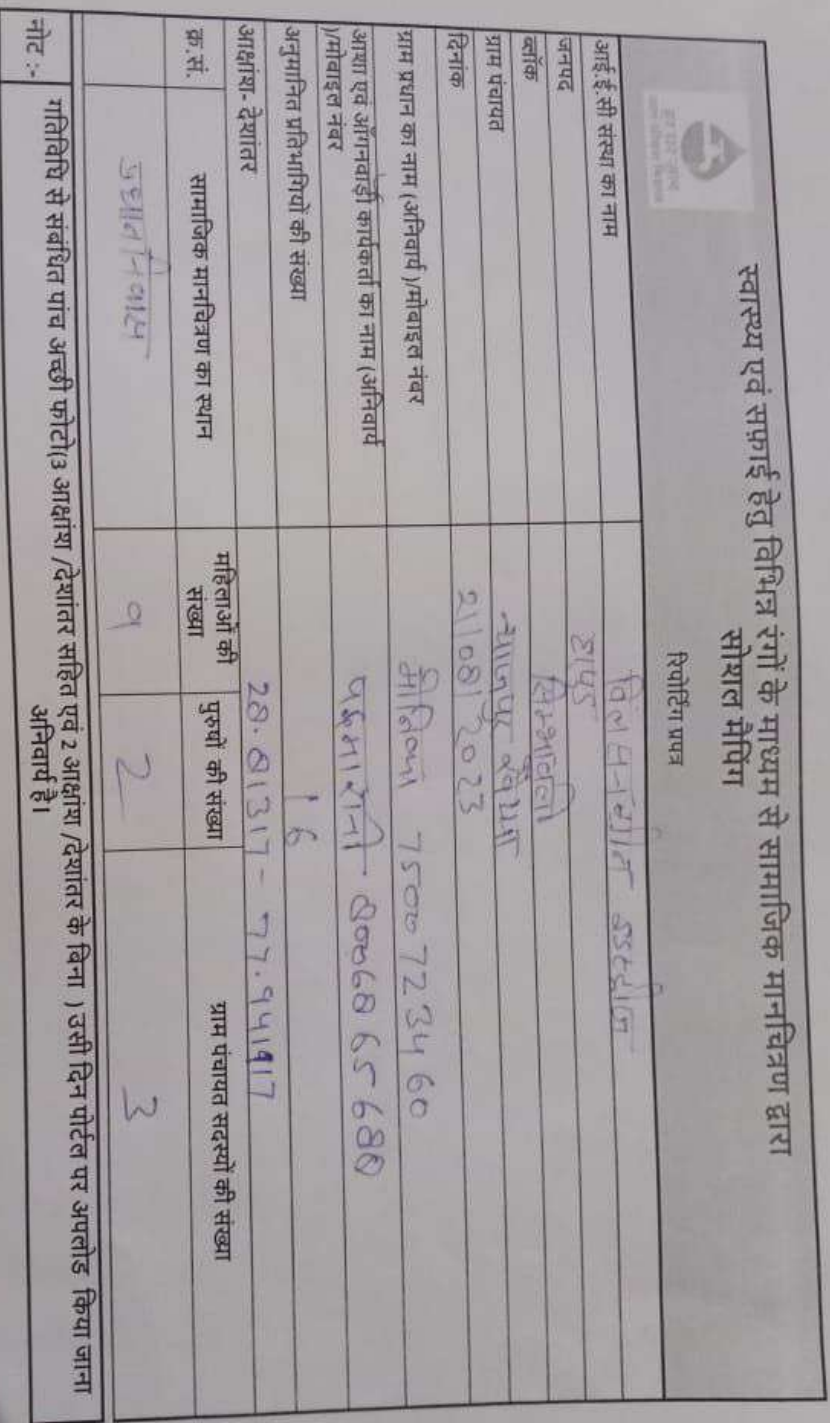 स्वास्थ्य एवं सफ़ाई हेतु विभिन्न रंगो के माध्यम से सामाजिक मानचित्रण द्वारा
सोशल मैपिंग
रिपोर्टिंग प्रपत्र
आई.ई.सी संस्था का नाम
जनपद हापुड़
ब्लॉक सिम्भावली
ग्राम पंचायत
दिनांक 21/08/2023
ग्राम प्रधान का नाम (अनिवार्य )/मोबाइल नंबर 7500 72 34 60
आशा एवं आँगनवाड़ी कार्यकर्ता का नाम (अनिवार्य
)/मोबाइल नंबर
अनुमानित प्रतिभागियों की संख्या 16
आक्षांश- देशांतर
क्र.सं. सामाजिक मानचित्रण का स्थान महिलाओं की संख्या पुरुषों की संख्या ग्राम पंचायत सदस्यों की संख्या
प्रधान निवास 9 2 3
नोट :- गतिविधि से संबंधित पांच अच्छी फोटो(3 आक्षांश /देशांतर सहित एवं 2 आक्षांश /देशांतर के बिना ) उसी दिन पोर्टल पर अपलोड किया जाना
अनिवार्य है।